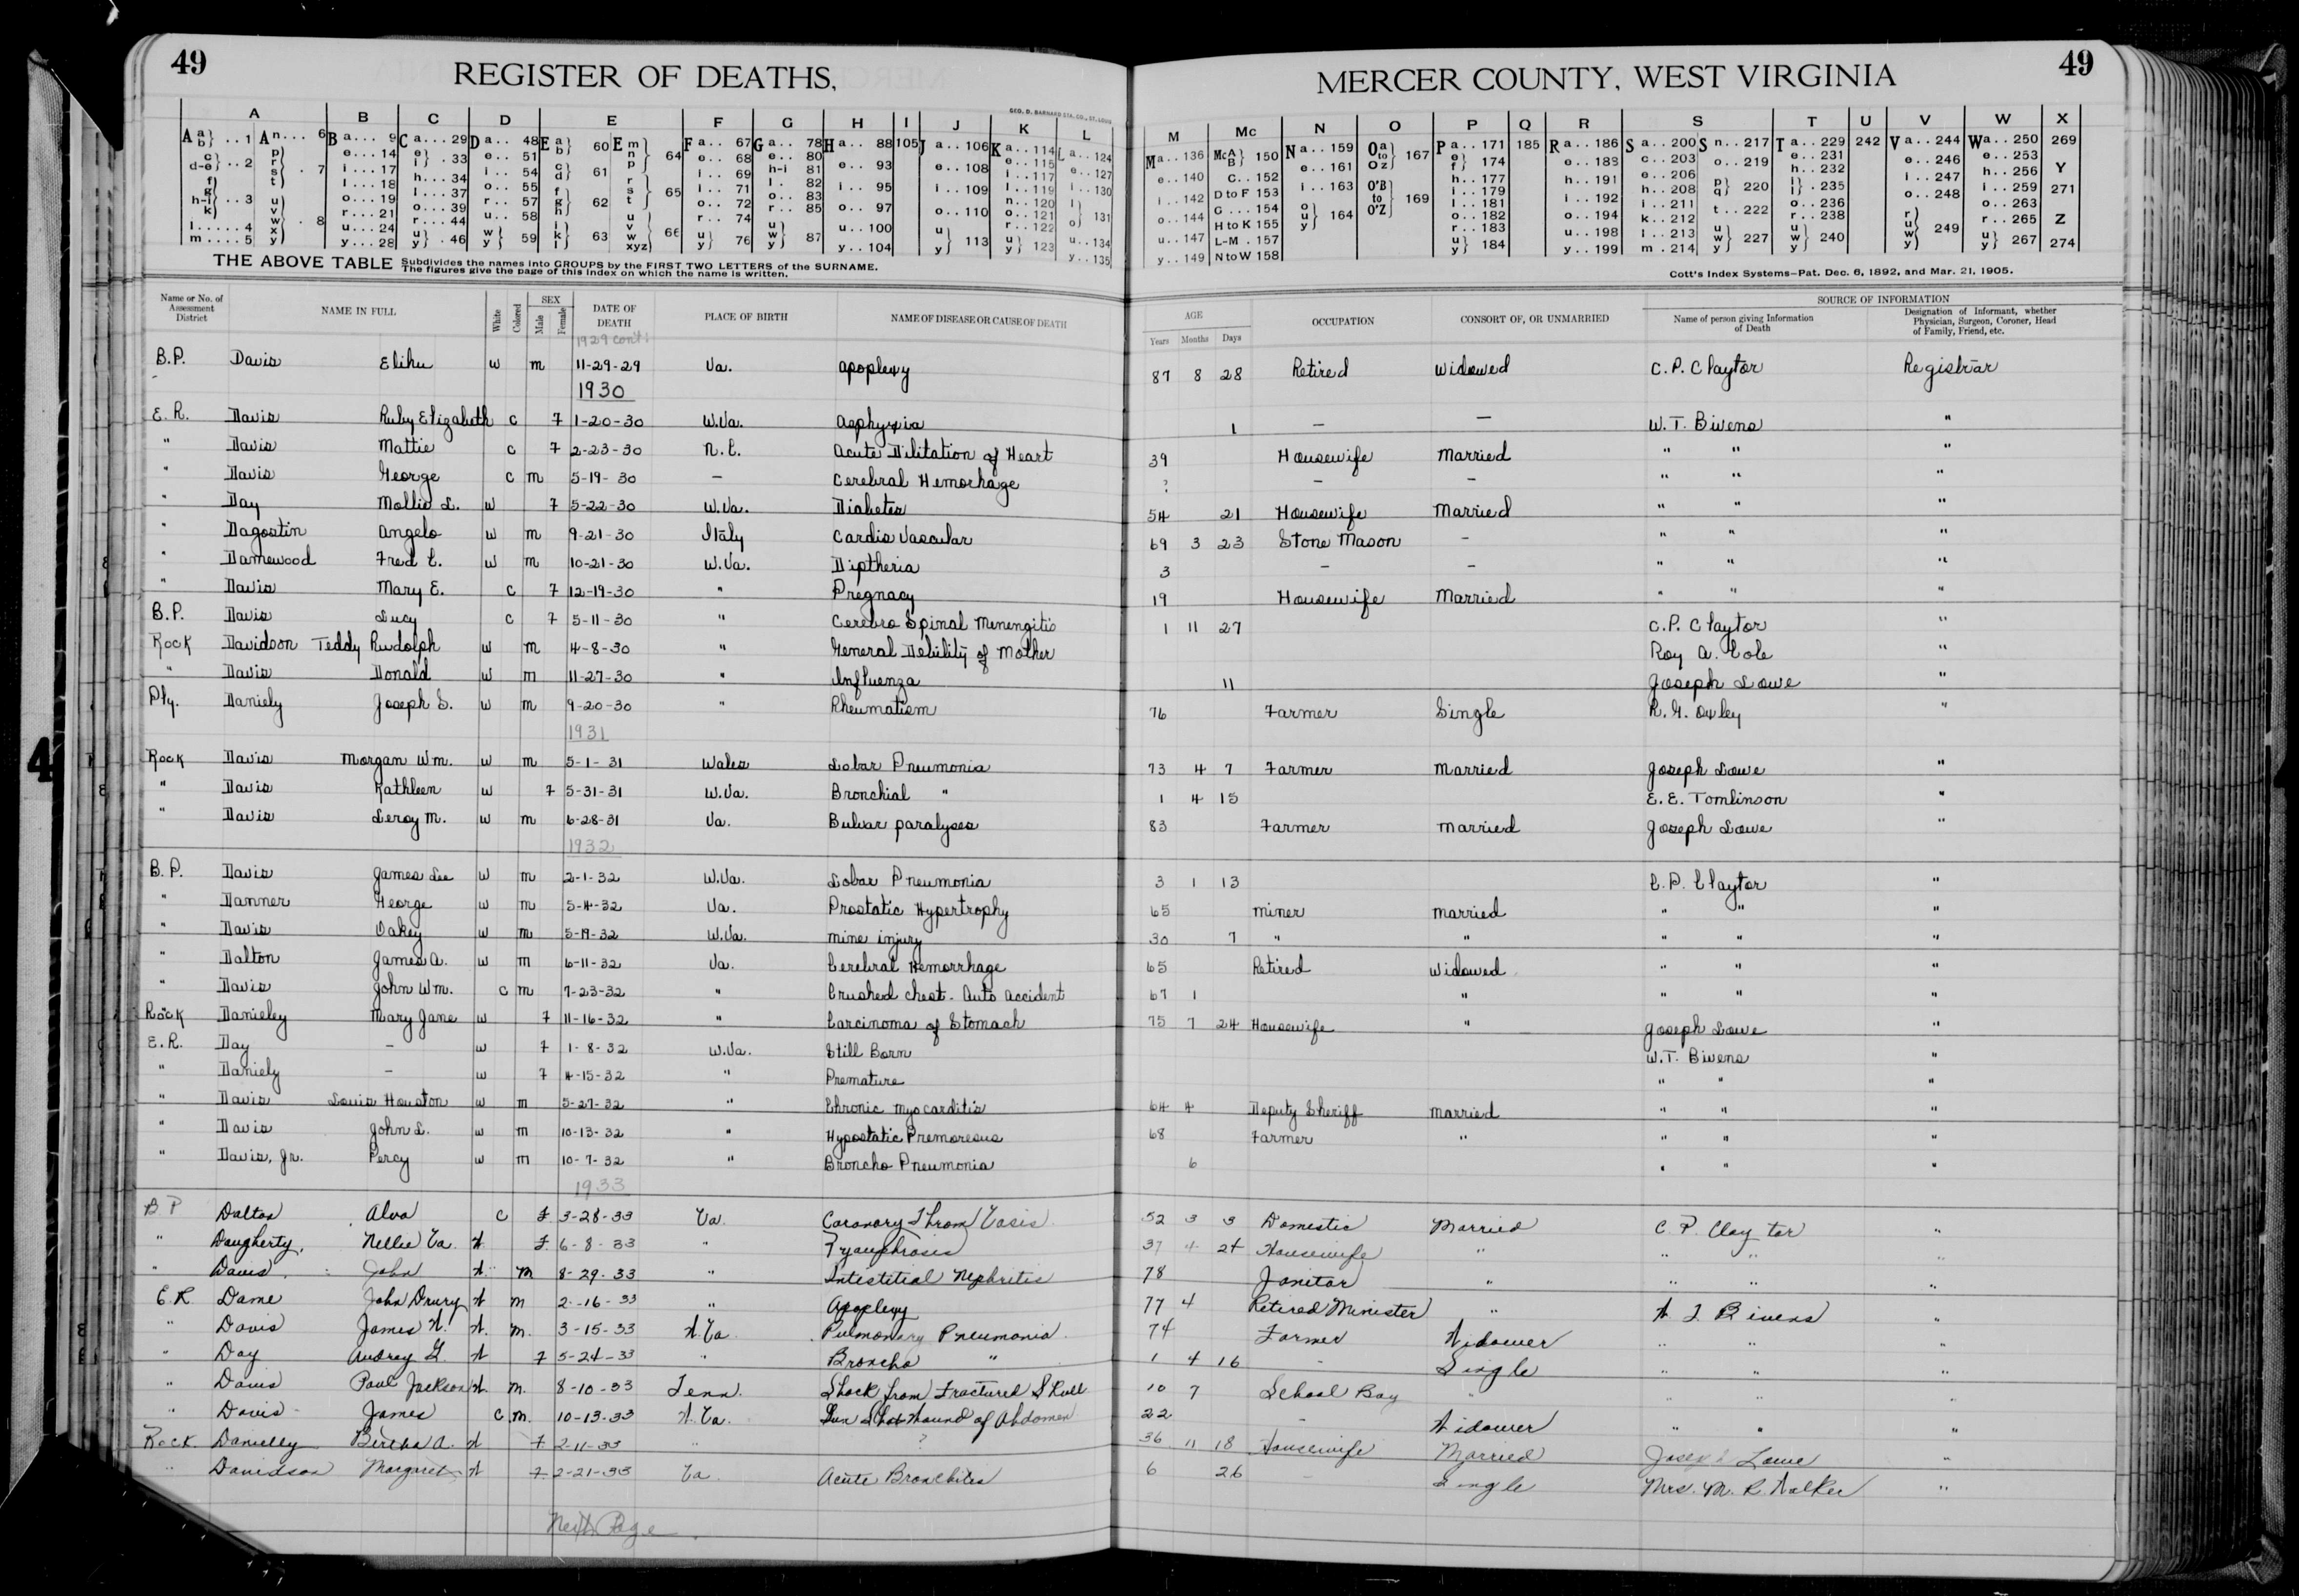 49 REGISTER OF DEATHS, MERCER COUNTY, WEST VIRGINIA 49
GEO. D. BARNARD STA. CO., ST. LOUIS
A B C D E F G H I J K L M Mc N O P Q R S T U V W X
THE ABOVE TABLE Subdivides the names into GROUPS by the FIRST TWO LETTERS of the SURNAME. The figures give the page of this Index on which the name is written.
Cott's Index Systems—Pat. Dec. 6, 1892, and Mar. 21, 1905.
Name or No. of Assessment District NAME IN FULL White Colored SEX Male Female DATE OF DEATH PLACE OF BIRTH NAME OF DISEASE OR CAUSE OF DEATH AGE Years Months Days OCCUPATION CONSORT OF, OR UNMARRIED SOURCE OF INFORMATION Name of person giving Information of Death Designation of Informant, whether Physician, Surgeon, Coroner, Head of Family, Friend, etc.
1929 cont
B.P. Davis Elihu w m 11-29-29 Va. apoplexy 87 8 28 Retired Widowed C.P. Claytor Registrar
1930
E.R. Davis Ruby Elizabeth c f 1-20-30 W.Va. Asphyxia 1 — — W.T. Bivens "
" Davis Mattie c f 2-23-30 N.C. Acute Dilitation of Heart 39 Housewife Married " " "
" Davis George c m 5-19-30 — Cerebral Hemorhage ? — — " " "
" Day Mollie L. w f 5-22-30 W.Va. Diabetes 54 21 Housewife Married " " "
" Dagostin Angelo w m 9-21-30 Italy Cardio Vascular 69 3 23 Stone Mason — " " "
" Damewood Fred C. w m 10-21-30 W.Va. Diptheria 3 — — " " "
" Davis Mary E. c f 12-19-30 " Pregnacy 19 Housewife Married " " "
B.P. Davis Lucy c f 5-11-30 " Cerebro Spinal Menengitis 1 11 27 C.P. Claytor "
Rock Davidson Teddy Rudolph w m 4-8-30 " General Debility of Mother Roy A. Cole "
" Davis Donald w m 11-27-30 " Influenza 11 Joseph Lowe "
Ply. Daniely Joseph S. w m 9-20-30 " Rheumatism 76 Farmer Single R.G. Oxley "
1931
Rock Davis Morgan Wm. w m 5-1-31 Wales Lobar Pneumonia 73 4 7 Farmer Married Joseph Lowe "
" Davis Kathleen w f 5-31-31 W.Va. Bronchial " 1 4 15 E.E. Tomlinson "
" Davis Leroy M. w m 6-28-31 Va. Bulvar paralyses 83 Farmer Married Joseph Lowe "
1932
B.P. Davis James Lee w m 2-1-32 W.Va. Lobar Pneumonia 3 1 13 C.P. Claytor "
" Danner George w m 5-4-32 Va. Prostatic Hypertrophy 65 miner married " " "
" Davis Oakey w m 5-19-32 W.Va. mine injury 30 7 " " " " "
" Dalton James A. w m 6-11-32 Va. Cerebral Hemorrhage 65 Retired Widowed " " "
" Davis John Wm. c m 7-23-32 " Crushed chest - Auto accident 67 1 " " " "
Rock Danieley Mary Jane w f 11-16-32 " Carcinoma of Stomach 75 7 24 Housewife " Joseph Lowe "
E.R. Day — w f 1-8-32 W.Va. Still Born W.T. Bivens "
" Daniely — w f 4-15-32 " Premature " " "
" Davis Louis Houston w m 5-27-32 " Chronic myocarditis 64 4 Deputy Sheriff married " " "
" Davis John L. w m 10-13-32 " Hypostatic 68 Farmer " " " "
" Davis, Jr. Percy w m 10-7-32 " Broncho Pneumonia 6 " " "
1933
B P Dalton Alva c f. 3-28-33 Va. Coronary 52 3 3 Domestic Married C. P. Claytor "
" Daugherty, Nellie Va. W f. 6-8-33 " 37 4 24 Housewife " " " "
" Davis John W. m 8-29-33 " Intestitial Nephritis 78 Janitor " " " "
E.R. Dame John Drury W m 2-16-33 " Apoplexy 77 4 Retired Minister " W T Bivens "
" Davis James W. W. m. 3-15-33 W.Va. Pulmonary Pneumonia 74 Farmer Widower " " "
" Day Audrey G. W f 5-24-33 " Broncho " 1 4 16 - Single " " "
" Davis Paul Jackson W. m. 8-10-33 Tenn. Shock from Fractured Skull 10 7 School Boy " " " "
" Davis James c m. 10-13-33 W.Va. Gun Shot Wound of Abdomen 22 - Widower " " "
Rock Danielly Bertha A. W f 2-11-33 " ? 36 11 18 Housewife Married Joseph Lowe "
" Davidson Margaret W f 2-21-33 Va. Acute Bronchites 6 26 - Single Mrs. M. R. Walker "
Next Page